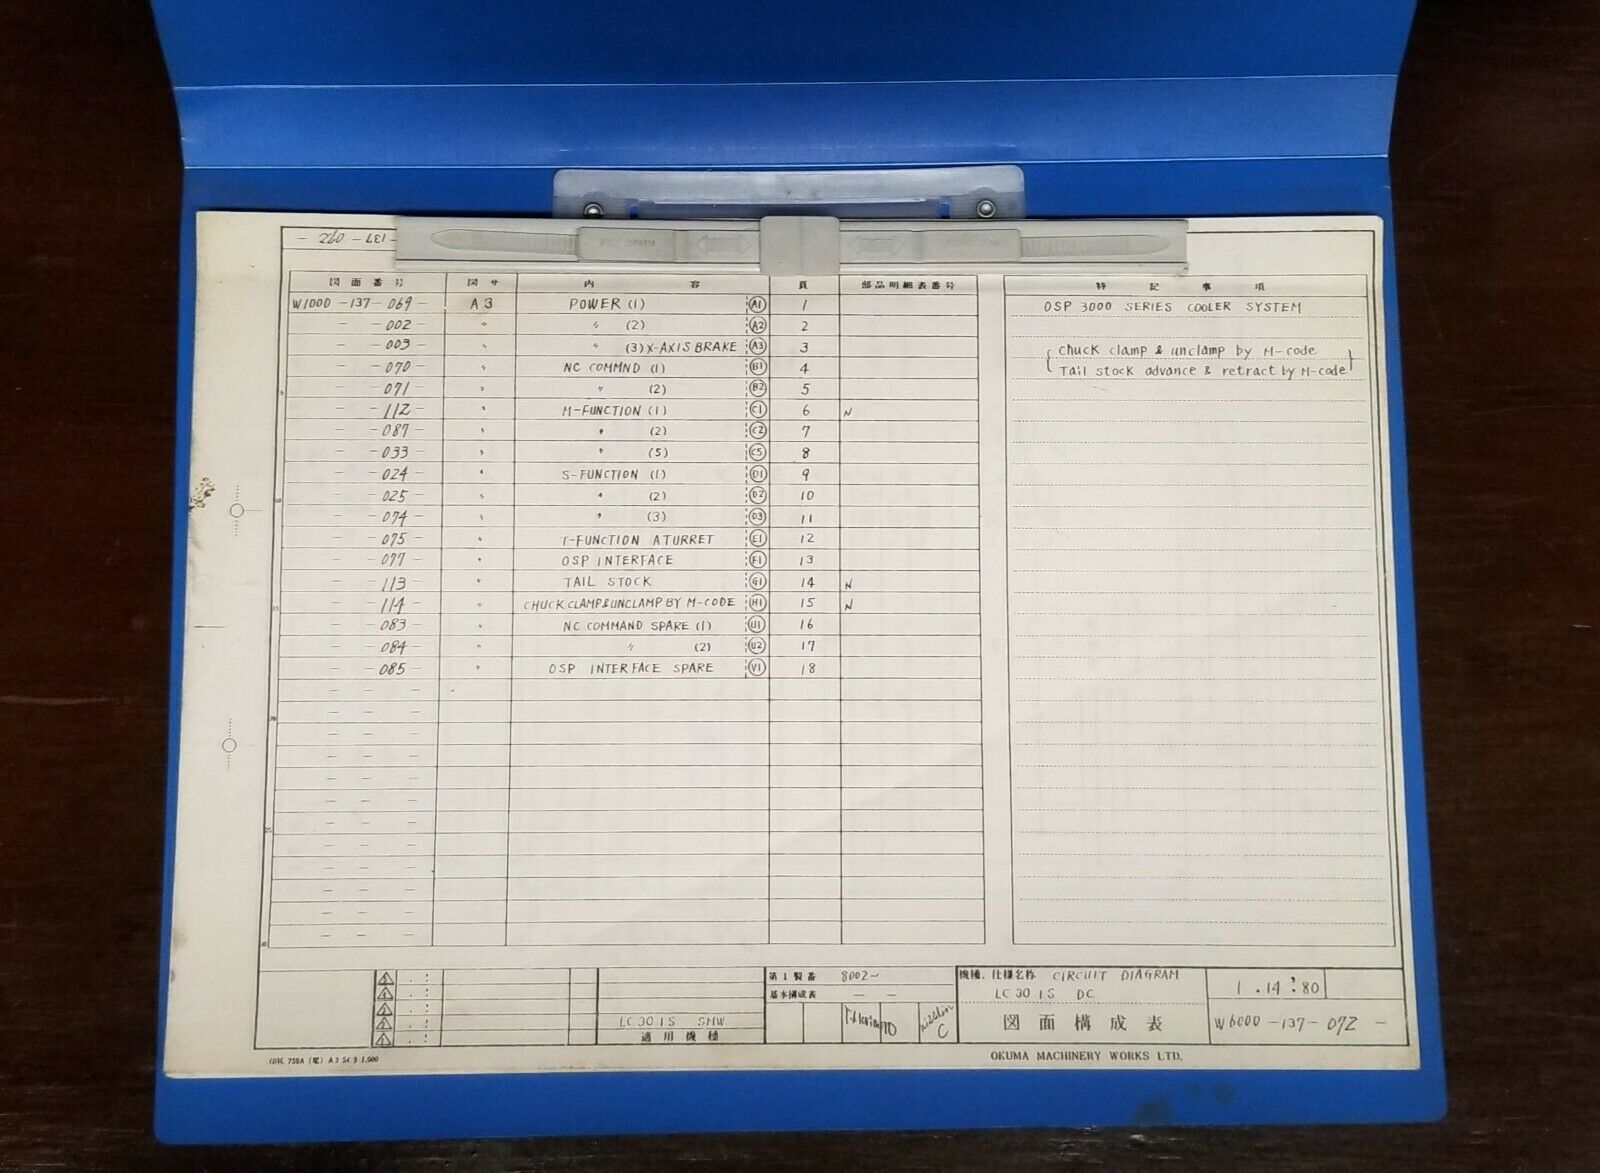 - 137 - 092 -
図面番号 図サ 内容 頁 部品明細表番号 特記事項
W1000-137-069- A3 POWER (1) A1 1 OSP 3000 SERIES COOLER SYSTEM
- -002- 〃 〃 (2) A2 2
- -003- 〃 〃 (3) X-AXIS BRAKE A3 3 Chuck clamp & unclamp by M-code
- -070- 〃 NC COMMND (1) B1 4 Tail stock advance & retract by M-code
- -071- 〃 〃 (2) B2 5
- -112- 〃 M-FUNCTION (1) C1 6 N
- -087- 〃 〃 (2) C2 7
- -033- 〃 〃 (5) C5 8
- -024- 〃 S-FUNCTION (1) D1 9
- -025- 〃 〃 (2) D2 10
- -074- 〃 〃 (3) D3 11
- -075- 〃 T-FUNCTION A TURRET E1 12
- -077- 〃 OSP INTERFACE F1 13
- -113- 〃 TAIL STOCK G1 14 N
- -114- 〃 CHUCK CLAMP & UNCLAMP BY M-CODE H1 15 N
- -083- 〃 NC COMMAND SPARE (1) U1 16
- -084- 〃 〃 (2) U2 17
- -085- 〃 OSP INTERFACE SPARE V1 18
5
10
15
20
25
30
第1製番 8002~ 機種、仕様名称 CIRCUIT DIAGRAM
基本構成表 - - LC 30 1S DC 1. 14. '80
LC 30 1S SMW 図面構成表 W6000-137-092-
適用機種
A3 54. 9 1,000 OKUMA MACHINERY WORKS LTD.